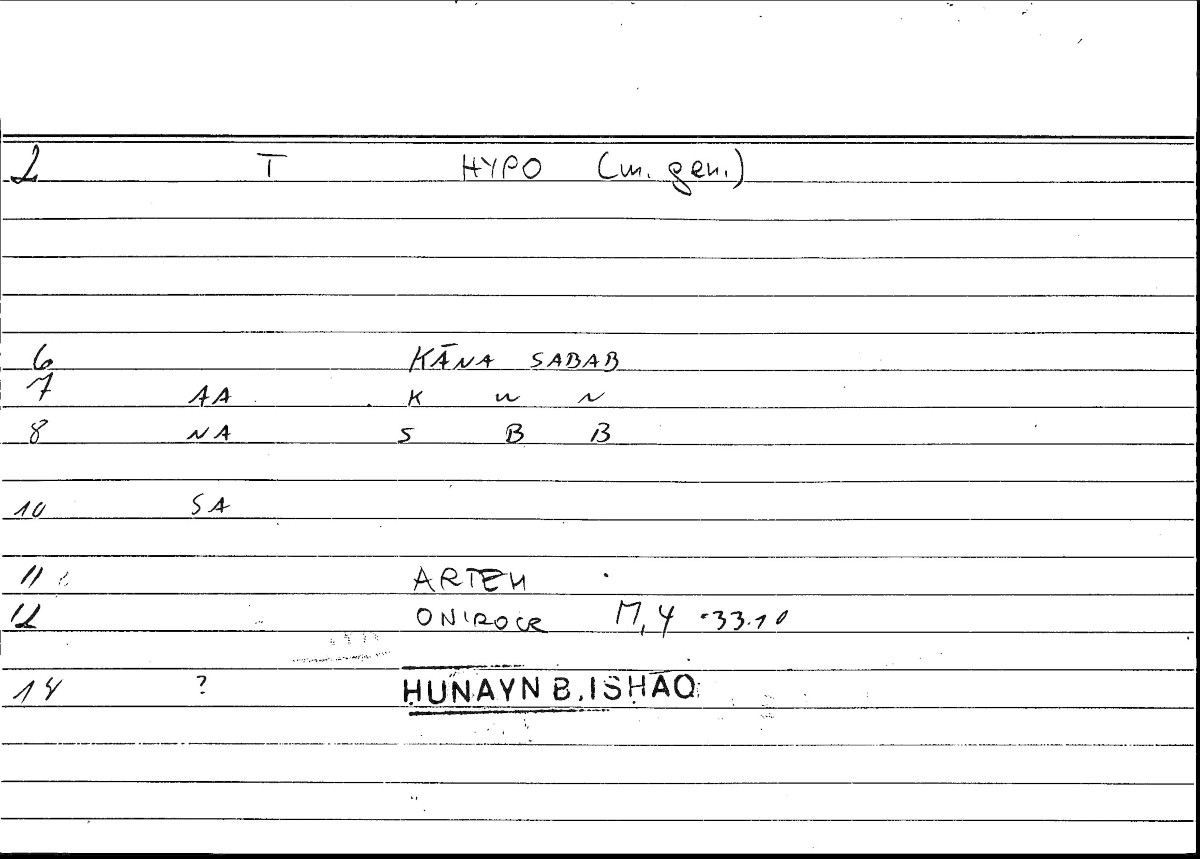 2 T HYPO (m. gen.)
6 KĀNA SABAB
7 AA K W N
8 NA S B B
10 SA
11 ARTEM
12 ONIROCR 17,4 33.10
14 ? ḤUNAYN B. ISḤĀQ